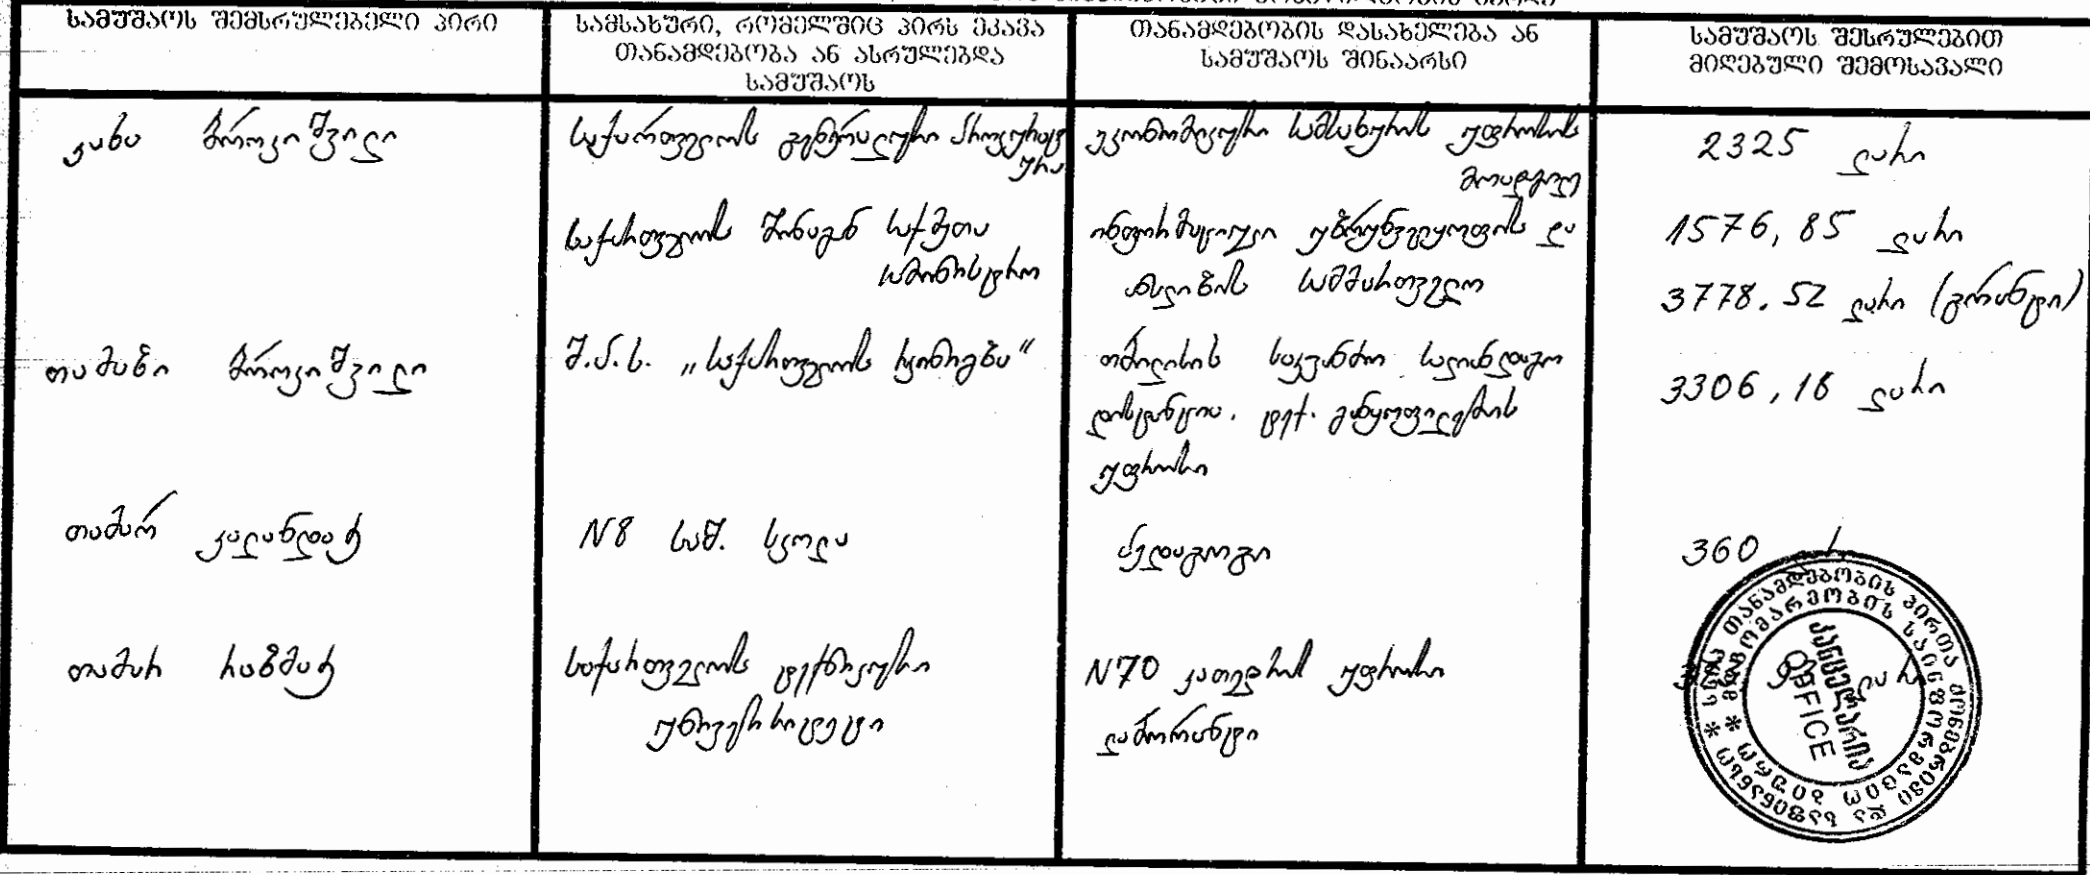 სამუშაოს შემსრულებელი პირი
სამსახური, რომელშიც პირს ეკავა
თანამდებობა ან ასრულებდა
სამუშაოს
თანამდებობის დასახელება ან
სამუშაოს შინაარსი
სამუშაოს შესრულებით
მიღებული შემოსავალი
კახა ბროკიშვილი
საქართველოს გენერალური პროკურატ
ურა
ეკონომიკური სამსახურის უფროსის
მოადგილე
2325 ლარი
საქართველოს შინაგან საქმეთა
სამინისტრო
ინფორმაციული უზრუნველყოფის და
ანალიზის სამმართველო
1576,85 ლარი
3778.52 ლარი (გრანტი)
თამაზი ბროკიშვილი
შ.პ.ს. „საქართველოს რკინიგზა“
თბილისის საკვანძო სალიანდაგო
დისტანცია. ტექ. განყოფილების
უფროსი
3306,16 ლარი
თამარ კალანდაძე
N8 საშ. სკოლა
პედაგოგი
360
თამარ რაზმაძე
საქართველოს ტექნიკური
უნივერსიტეტი
N70 კათედრის უფროსი
ლაბორანტი
თანამდებობის პირთა ქონებრივი და საფინანსო
მდგომარეობის საინფორმაციო ბიურო
კანცელარია
OFFICE